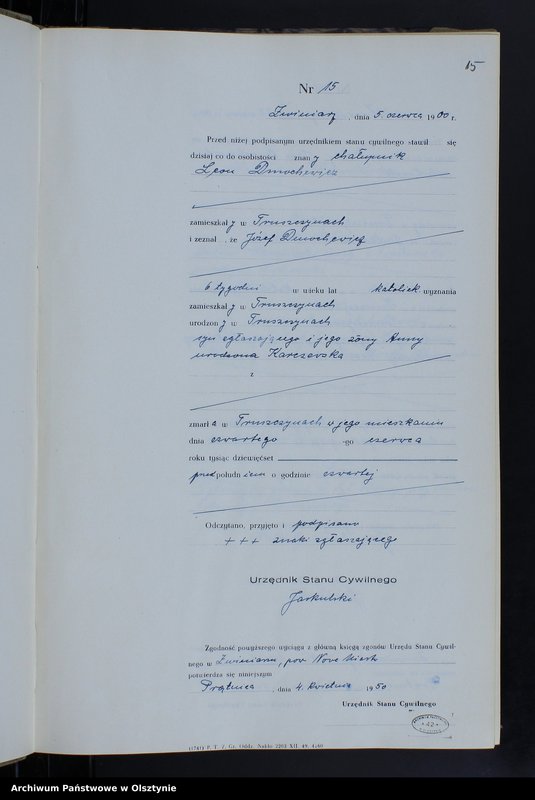 15
Nr 15
Zwiniarz, dnia 5. czerwca 1900 r.
Przed niżej podpisanym urzędnikiem stanu cywilnego stawił się
dzisiaj co do osobistości znany chałupnik
Leon Dmochewicz
zamieszkały w Truszczynach
i zeznał, że Józef Dmochewicz
6 tygodni w wieku lat katolick. wyznania
zamieszkały w Truszczynach
urodzony w Truszczynach
syn zgłaszającego i jego żony Anny
urodzona Karczewska
z
zmarł a w Truszczynach w jego mieszkaniu
dnia czwartego -go czerwca
roku tysiąc dziewięćset
przedpołudniem o godzinie czwartej
Odczytano, przyjęto i podpisano
+++ znaki zgłaszającego
Urzędnik Stanu Cywilnego
Jaskulski
Zgodność powyższego wyciągu z główną księgą zgonów Urzędu Stanu Cywil-
nego w Zwiniarzu, pow. Nowe Miasto
potwierdza się niniejszym
Prątnica, dnia 4. kwietnia 1950
Urzędnik Stanu Cywilnego
Archiwum Państwowe w Olsztynie